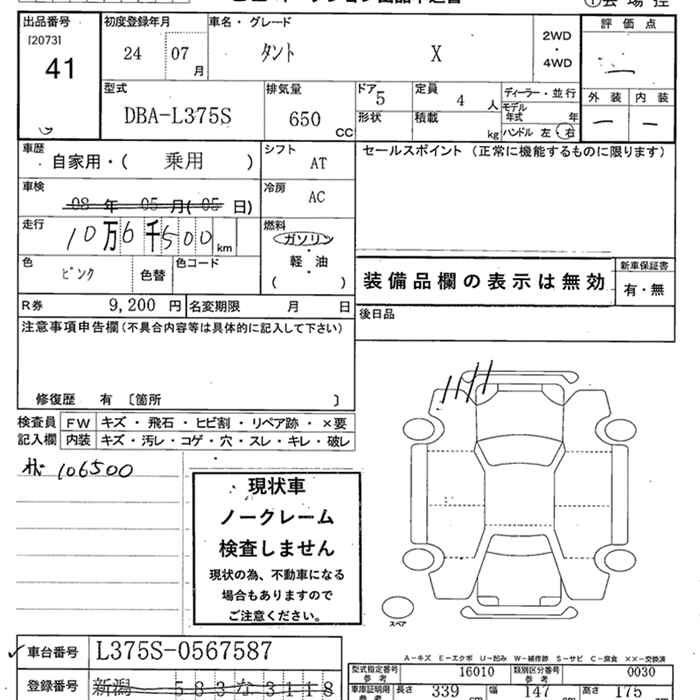 ①会場控
出品番号 初度登録年月 車名・グレード 評価点
[2073]
41
24 07 月
タント X
2WD・4WD
型式 DBA-L375S
排気量 650 CC
ドア 5
形状
定員 4 人
積載 kg
ディーラー・並行
モデル年式 年
ハンドル 左・右
外装 内装
車歴 自家用・( 乗用 )
シフト AT
セールスポイント (正常に機能するものに限ります)
車検 08 年 05 月(05 日)
冷房 AC
走行 10万6千500 km
燃料 ガソリン・軽油・( )
色 ピンク 色替 色コード
装備品欄の表示は無効
新車保証書 有・無
R券 9,200 円 名変期限 月 日
後日品
注意事項申告欄(不具合内容等は具体的に記入して下さい)
修復歴 有 〔箇所 〕
検査員 FW キズ・飛石・ヒビ割・リペア跡・×要
記入欄 内装 キズ・汚レ・コゲ・穴・スレ・キレ・破レ
106500
現状車
ノークレーム
検査しません
現状の為、不動車になる
場合もありますので
ご注意ください。
スペア
車台番号 L375S-0567587
A－キズ E－エクボ U－凹み W－補修跡 S－サビ C－腐食 ××－交換済
型式指定番号 参考 16010 類別区分番号 参考 0030
登録番号 新潟 583 な 3118
車庫証明用 参考 長さ 339 cm 幅 147 cm 高さ 175 cm